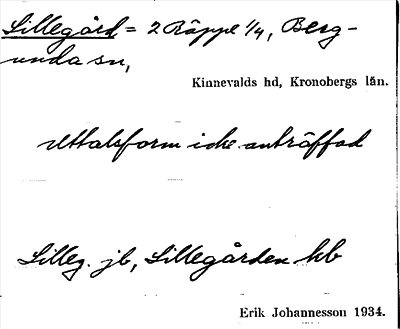 Lillegård = 2 Räppe 1/4, Berg-
unda sn,
Kinnevalds hd, Kronobergs län.
Uttalsform icke anträffad
Lilleg. jb, Lillegården kb
Erik Johannesson 1934.